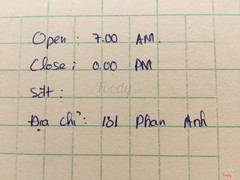 Open : 7.00 AM.
Close : 0.00 PM
Foody
Sđt :
Địa chỉ : 131 Phan Anh